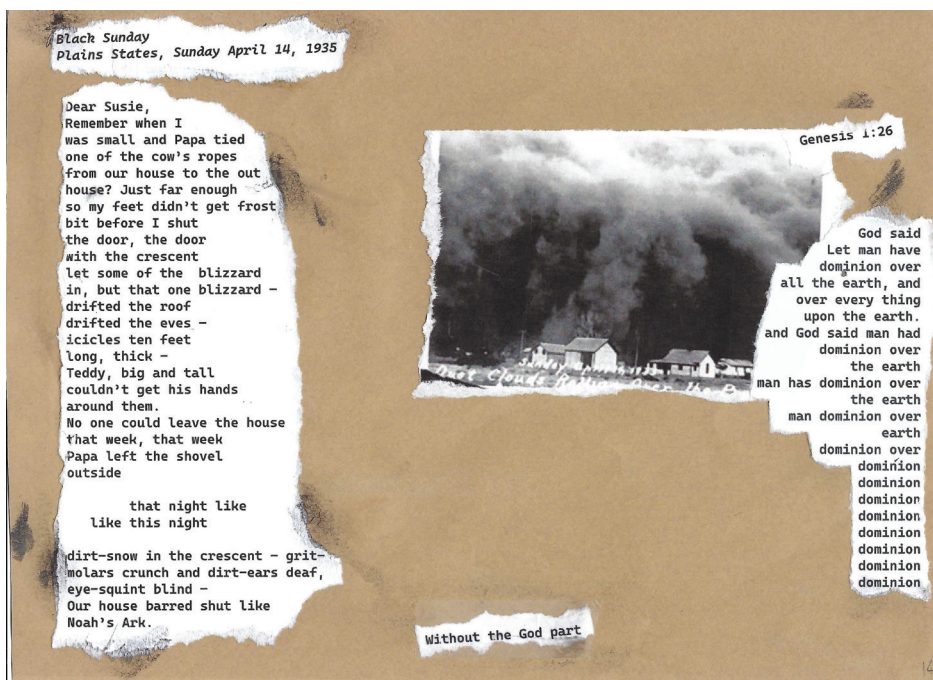 Black Sunday
Plains States, Sunday April 14, 1935
Dear Susie,
Remember when I
was small and Papa tied
one of the cow's ropes
from our house to the out
house? Just far enough
so my feet didn't get frost
bit before I shut
the door, the door
with the crescent
let some of the blizzard
in, but that one blizzard –
drifted the roof
drifted the eves –
icicles ten feet
long, thick –
Teddy, big and tall
couldn't get his hands
around them.
No one could leave the house
that week, that week
Papa left the shovel
outside
that night like
like this night
dirt-snow in the crescent – grit-
molars crunch and dirt-ears deaf,
eye-squint blind –
Our house barred shut like
Noah's Ark.
Sunday April 14, 1935
Dust Clouds Rolling Over the
Without the God part
Genesis 1:26
God said
Let man have
dominion over
all the earth, and
over every thing
upon the earth.
and God said man had
dominion over
the earth
man has dominion over
the earth
man dominion over
earth
dominion over
dominion
dominion
dominion
dominion
dominion
dominion
dominion
dominion